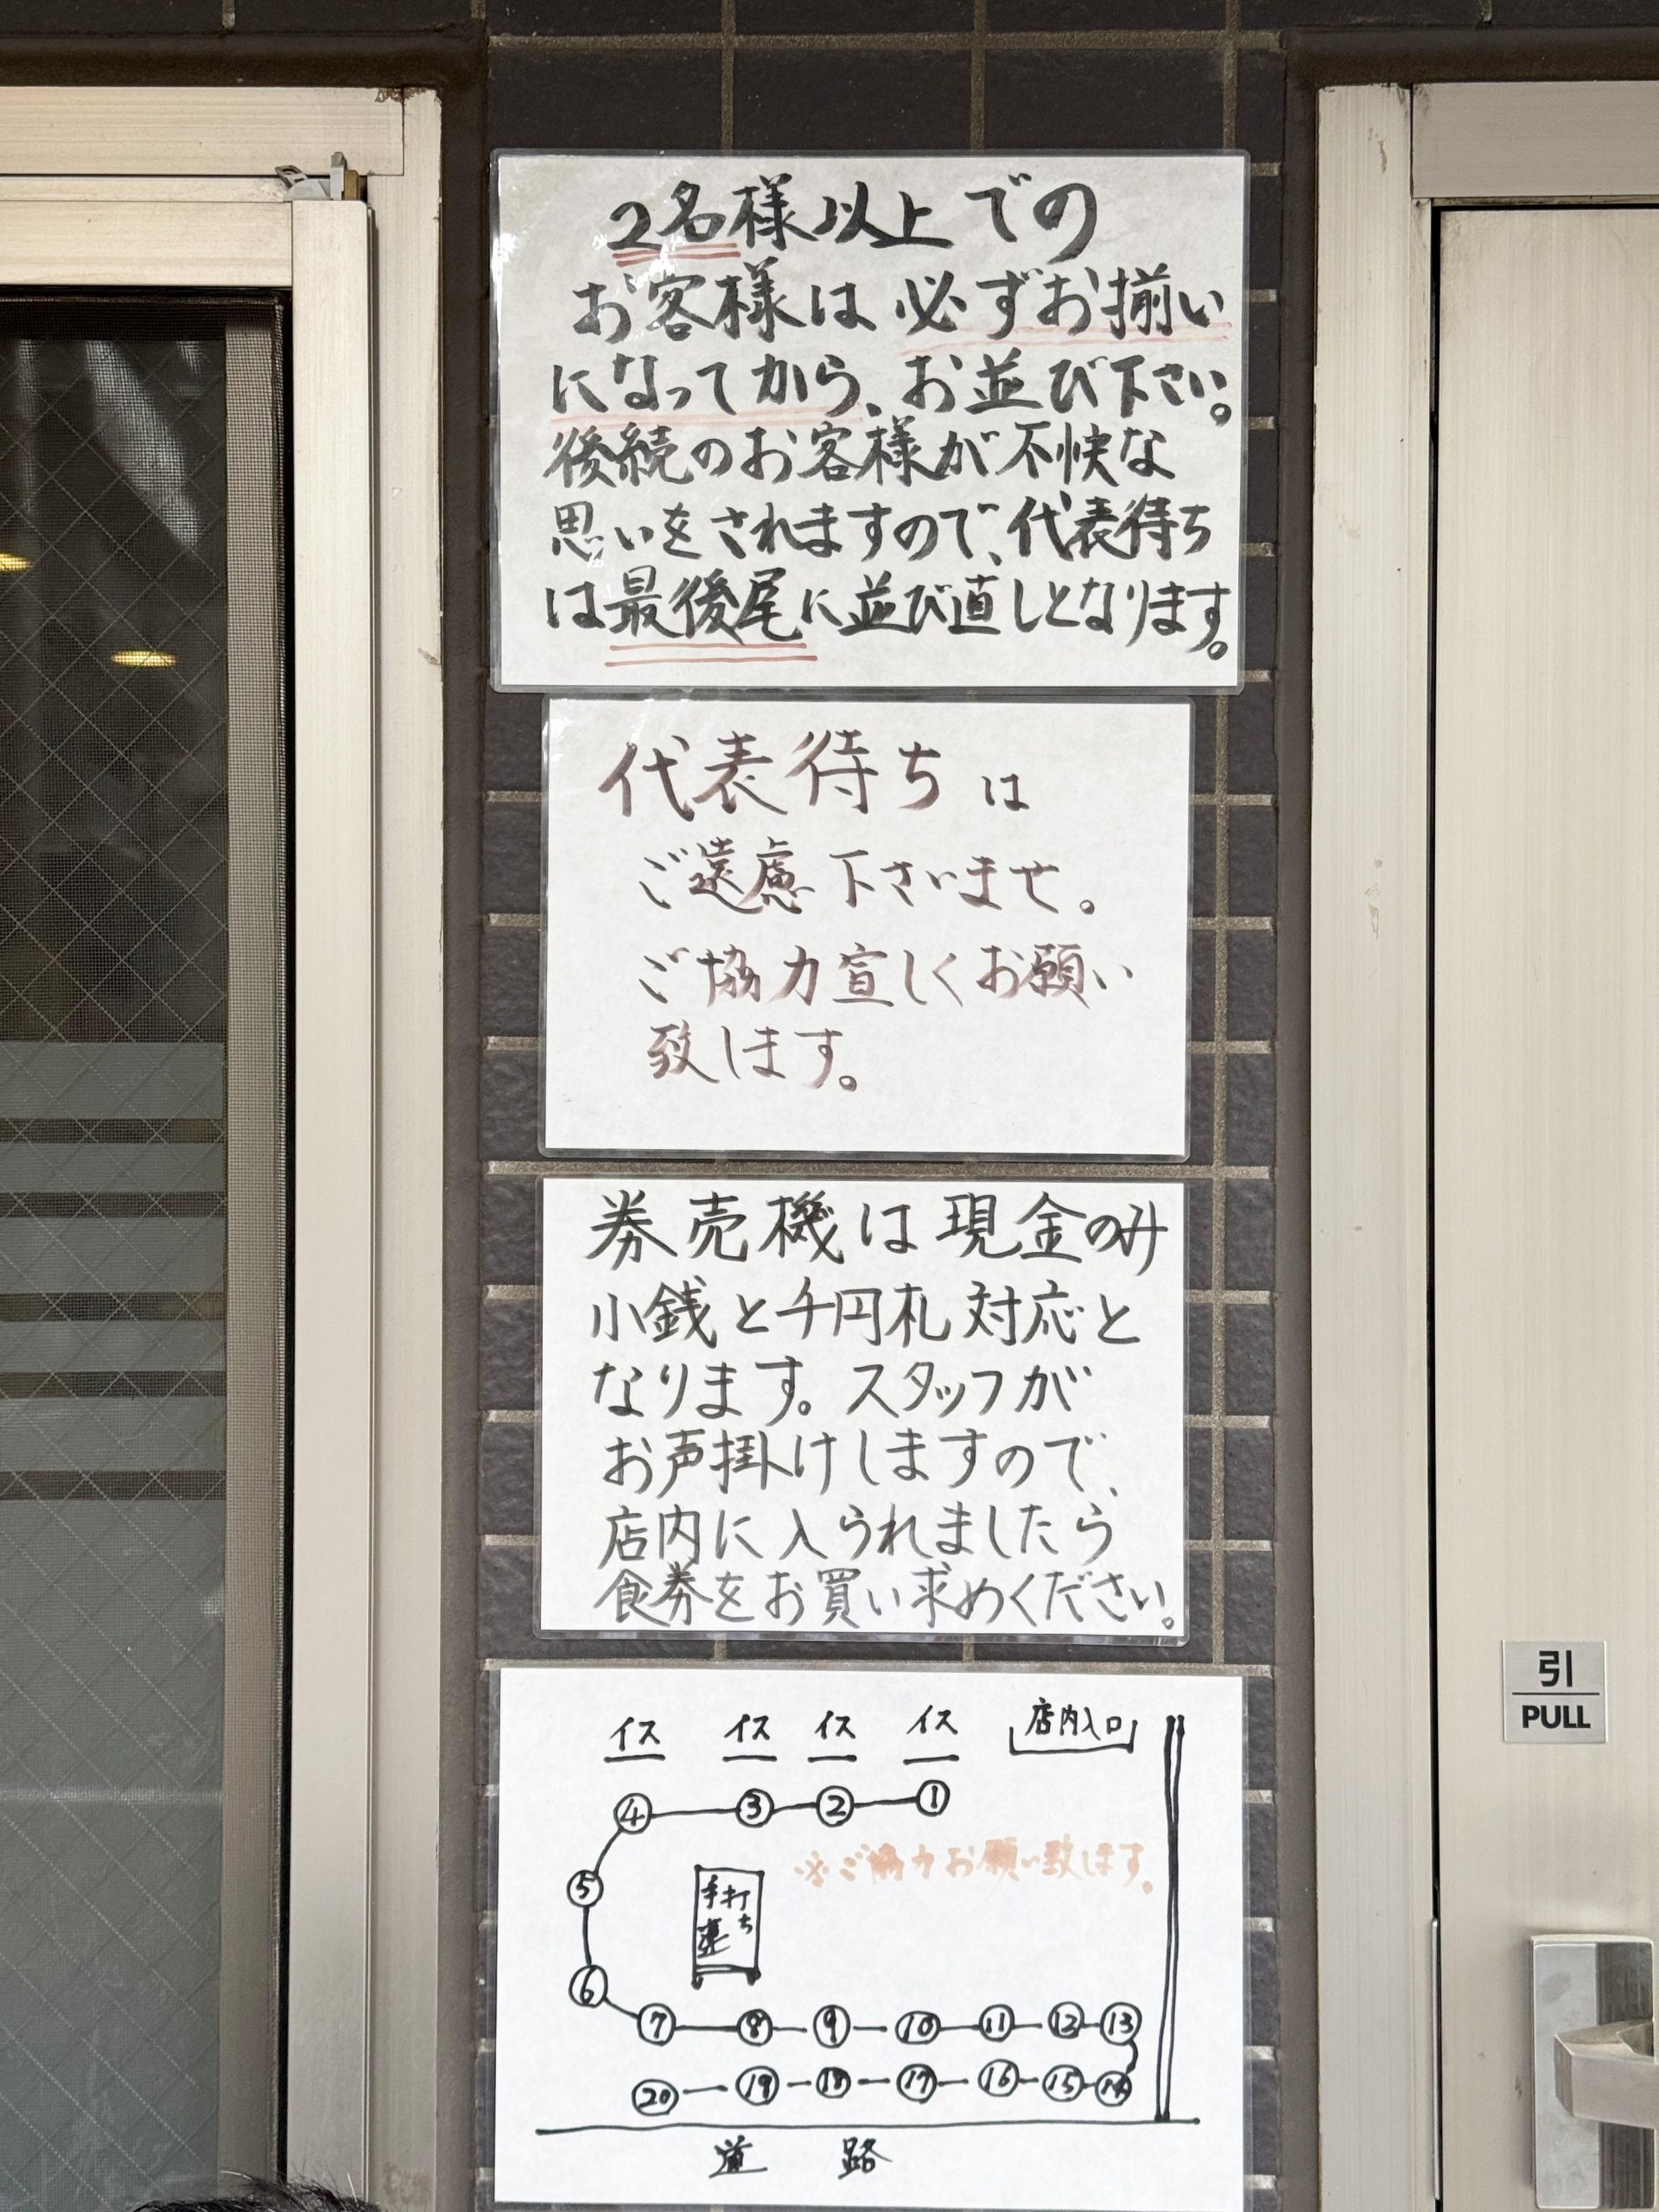 2名様以上での
お客様は必ずお揃い
になってから、お並び下さい。
後続のお客様が不快な
思いをされますので、代表待ち
は最後尾に並び直しとなります。
代表待ちは
ご遠慮下さいませ。
ご協力宜しくお願い
致します。
券売機は現金のみ
小銭と千円札対応と
なります。スタッフが
お声掛けしますので、
店内に入られましたら
食券をお買い求めください。
イス イス イス イス 店内入口
④ ③ ② ①
※ご協力お願い致します。
⑤
手打ち
⑥
⑦ ⑧ ⑨ ⑩ ⑪ ⑫ ⑬
⑳ ⑲ ⑱ ⑰ ⑯ ⑮ ⑭
道路
引
PULL